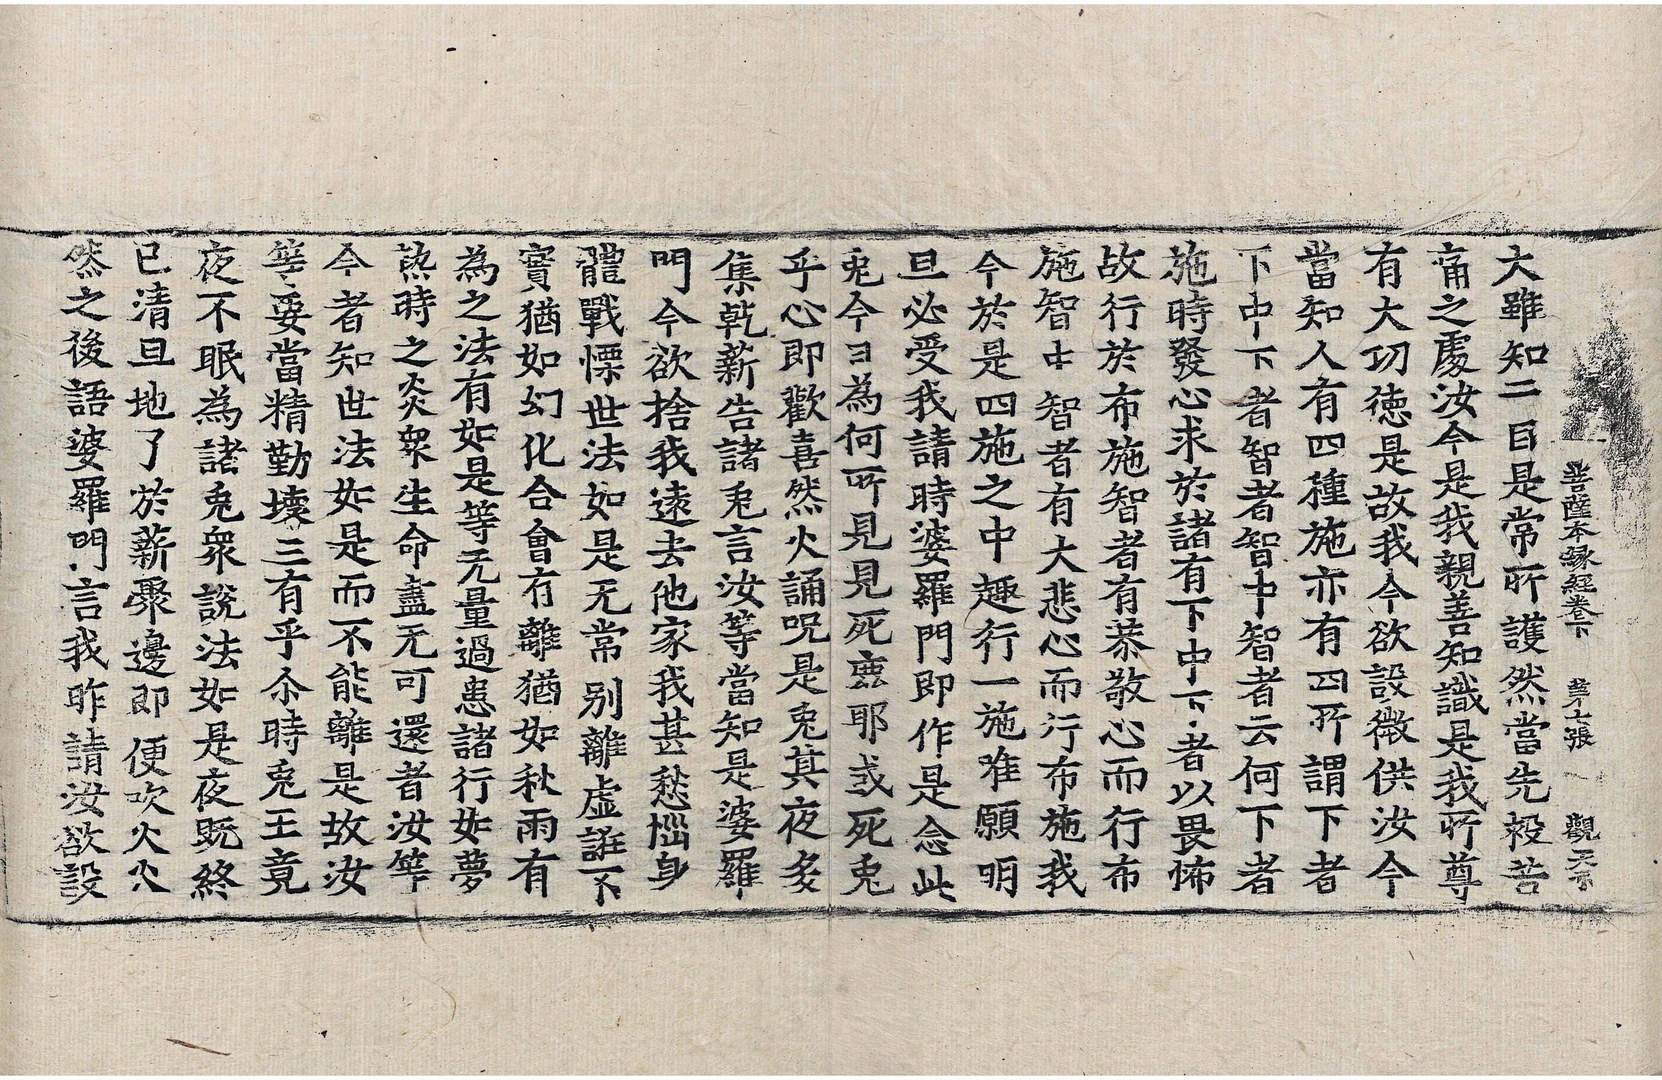 菩薩本縁經卷下 苐七張 觀
大雖知二目是常所護然當先救苦
痛之處汝今是我親善知識是我所尊
有大功德是故我今欲設微供汝今
當知人有四種施亦有四所謂下者
下中下者智者智中智者云何下者
施時發心求於諸有下中下者以畏怖
故行於布施智者有恭敬心而行布
施智中智者有大悲心而行布施我
今於是四施之中趣行一施唯願明
旦必受我請時婆羅門即作是念此
兎今日為何所見見死鹿耶或死兎
乎心即歡喜然火誦呪是兎其夜多
集乾薪告諸兎言汝等當知是婆羅
門今欲捨我遠去他家我甚愁惱身
體戰慄世法如是无常別離虛誑不
實猶如幻化合會有離猶如秋雨有
為之法有如是等无量過患諸行如夢
熱時之炎衆生命盡无可還者汝等
今者知世法如是而不能離是故汝
等要當精勤壞三有乎尒時兎王竟
夜不眠為諸兎衆說法如是夜既終
已清旦地了於薪聚邊即便吹火火
然之後語婆羅門言我昨請汝欲設